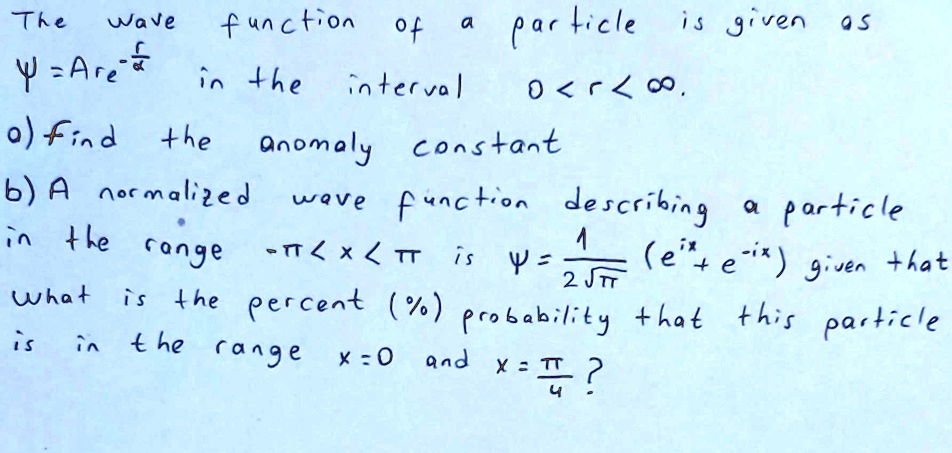 The wave function of a particle is given as
ψ = Are^{-r/α} in the interval 0 < r < ∞.
a) find the anomaly constant
b) A normalized wave function describing a particle
in the range -π < x < π is ψ = 1/(2√π) (e^{ix} + e^{-ix}) given that
what is the percent (%) probability that this particle
is in the range x = 0 and x = π/4 ?